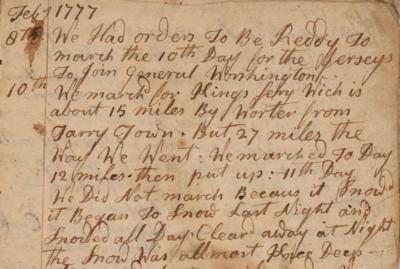 Feby 1777
8th We Had orders To Be Reddy To
march the 10th Day for the Jerseys
To Join General Worshington
10th We march for Kings fery Wich is
about 15 miles By Worter from
Tarry Town. But 27 miles the
Way We Went: We marched To Day
12 miles. then put up: 11th Day
We Did Not march Becaus it Snow'd
it Began To Snow Last Night and
Snowed all Day. Clear away at Night
the Snow Was allmost Knee Deep—